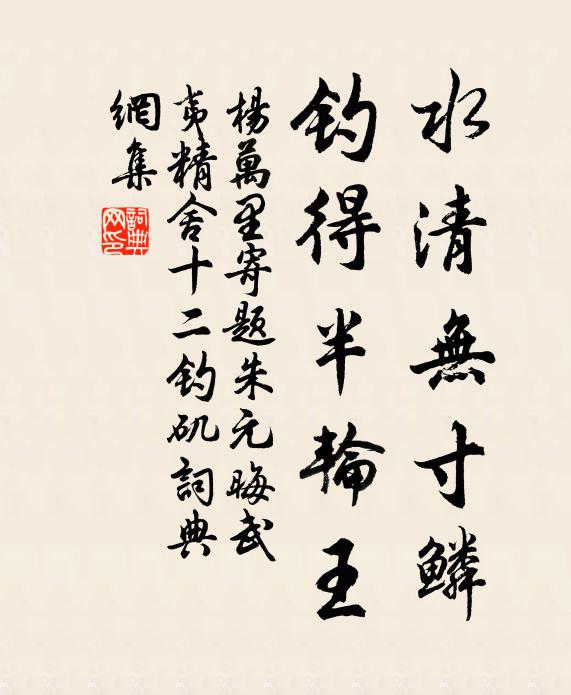 水清無寸鱗
钓得半輪王
楊萬里寄題朱元晦武
夷精舍十二钓矶詞典
網集
詞典网印